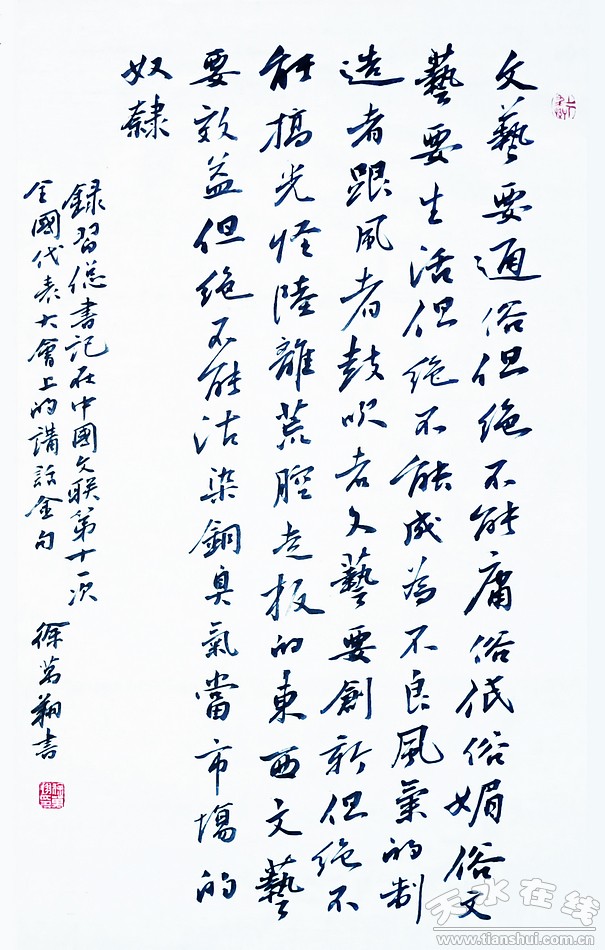 文藝要通俗但绝不能庸俗低俗媚俗文
藝要生活但绝不能成為不良風氣的制
造者跟风者鼓吹者文藝要創新但绝不
能搞光怪陸離荒腔走板的東西文藝
要效益但绝不能沾染銅臭氣當市場的
奴隸
録習總書記在中國文联第十一次
全國代表大會上的講話金句
徐萬翔書
天水在线
www.tianshui.com.cn